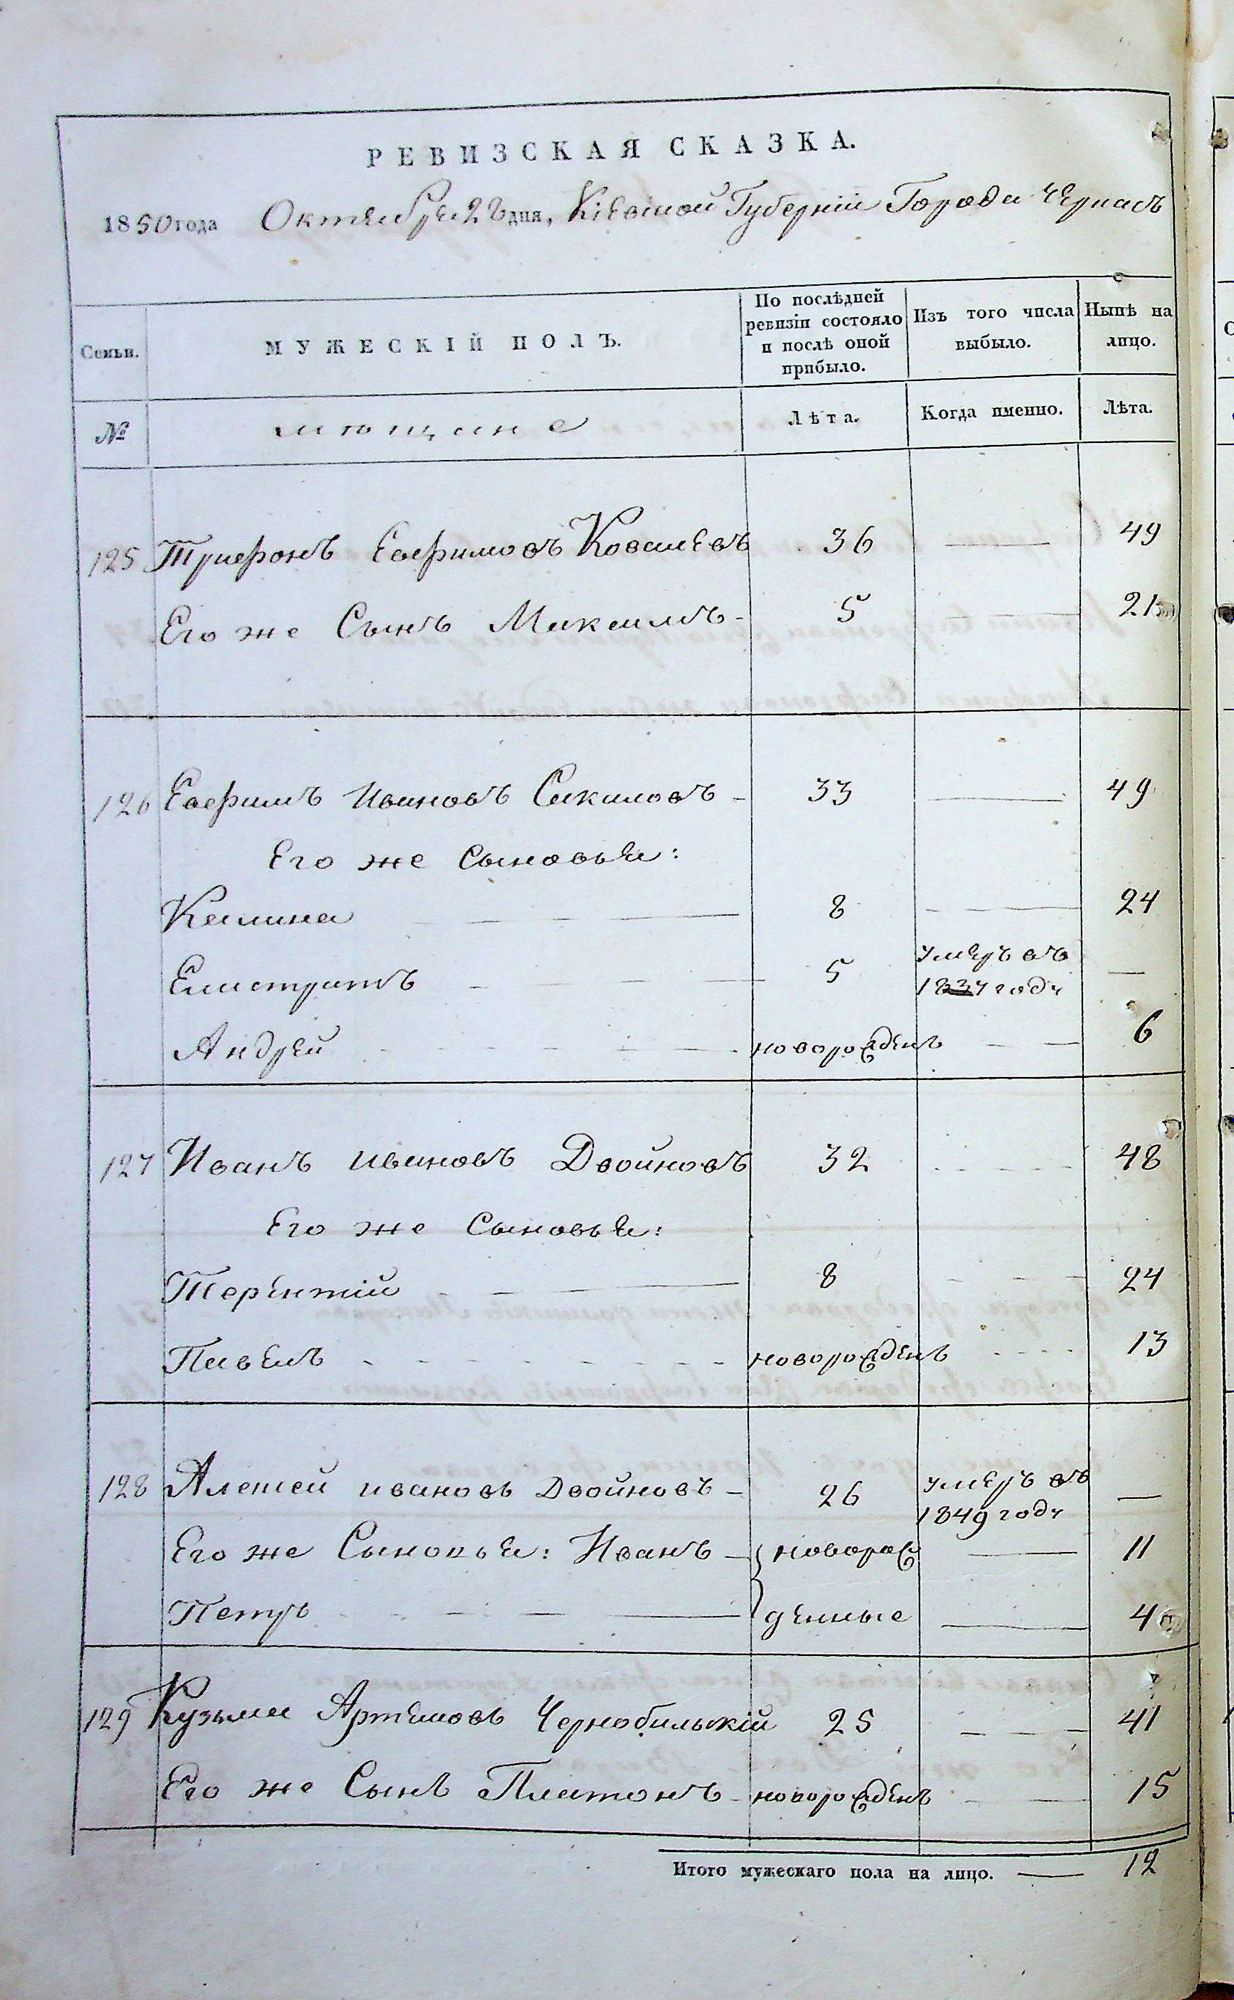 РЕВИЗСКАЯ СКАЗКА.
1850 года Октября 28 дня, Кіевской Губерніи Города Черкасъ
Семьи. МУЖЕСКІЙ ПОЛЪ. По послѣдней ревизіи состояло и послѣ оной прибыло. Изъ того числа выбыло. Нынѣ на лицо.
№ мещане Лѣта. Когда именно. Лѣта.
125 Трифонъ Ефимовъ Ковалевъ 36 — 49
Его же Сынъ Максимъ - 5 — 21
126 Ефимъ Ивановъ Секиловъ - 33 — 49
Его же Сыновья:
Калина — 8 — 24
Елистратъ — 5 Умеръ въ 1837 годѣ —
Андрей — новорожденъ — 6
127 Иванъ Ивановъ Двойновъ 32 — 48
Его же Сыновья:
Терентій — 8 — 24
Павелъ - новорожденъ — 13
128 Алексей Ивановъ Двойновъ - 26 Умеръ въ 1849 годѣ —
Его же Сыновья: Иванъ - новорож — 11
Петръ — денные — 4
129 Кузьма Артемовъ Чернобильскій 25 — 41
Его же Сынъ Платонъ - новорожденъ — 15
Итого мужескаго пола на лицо. — 12